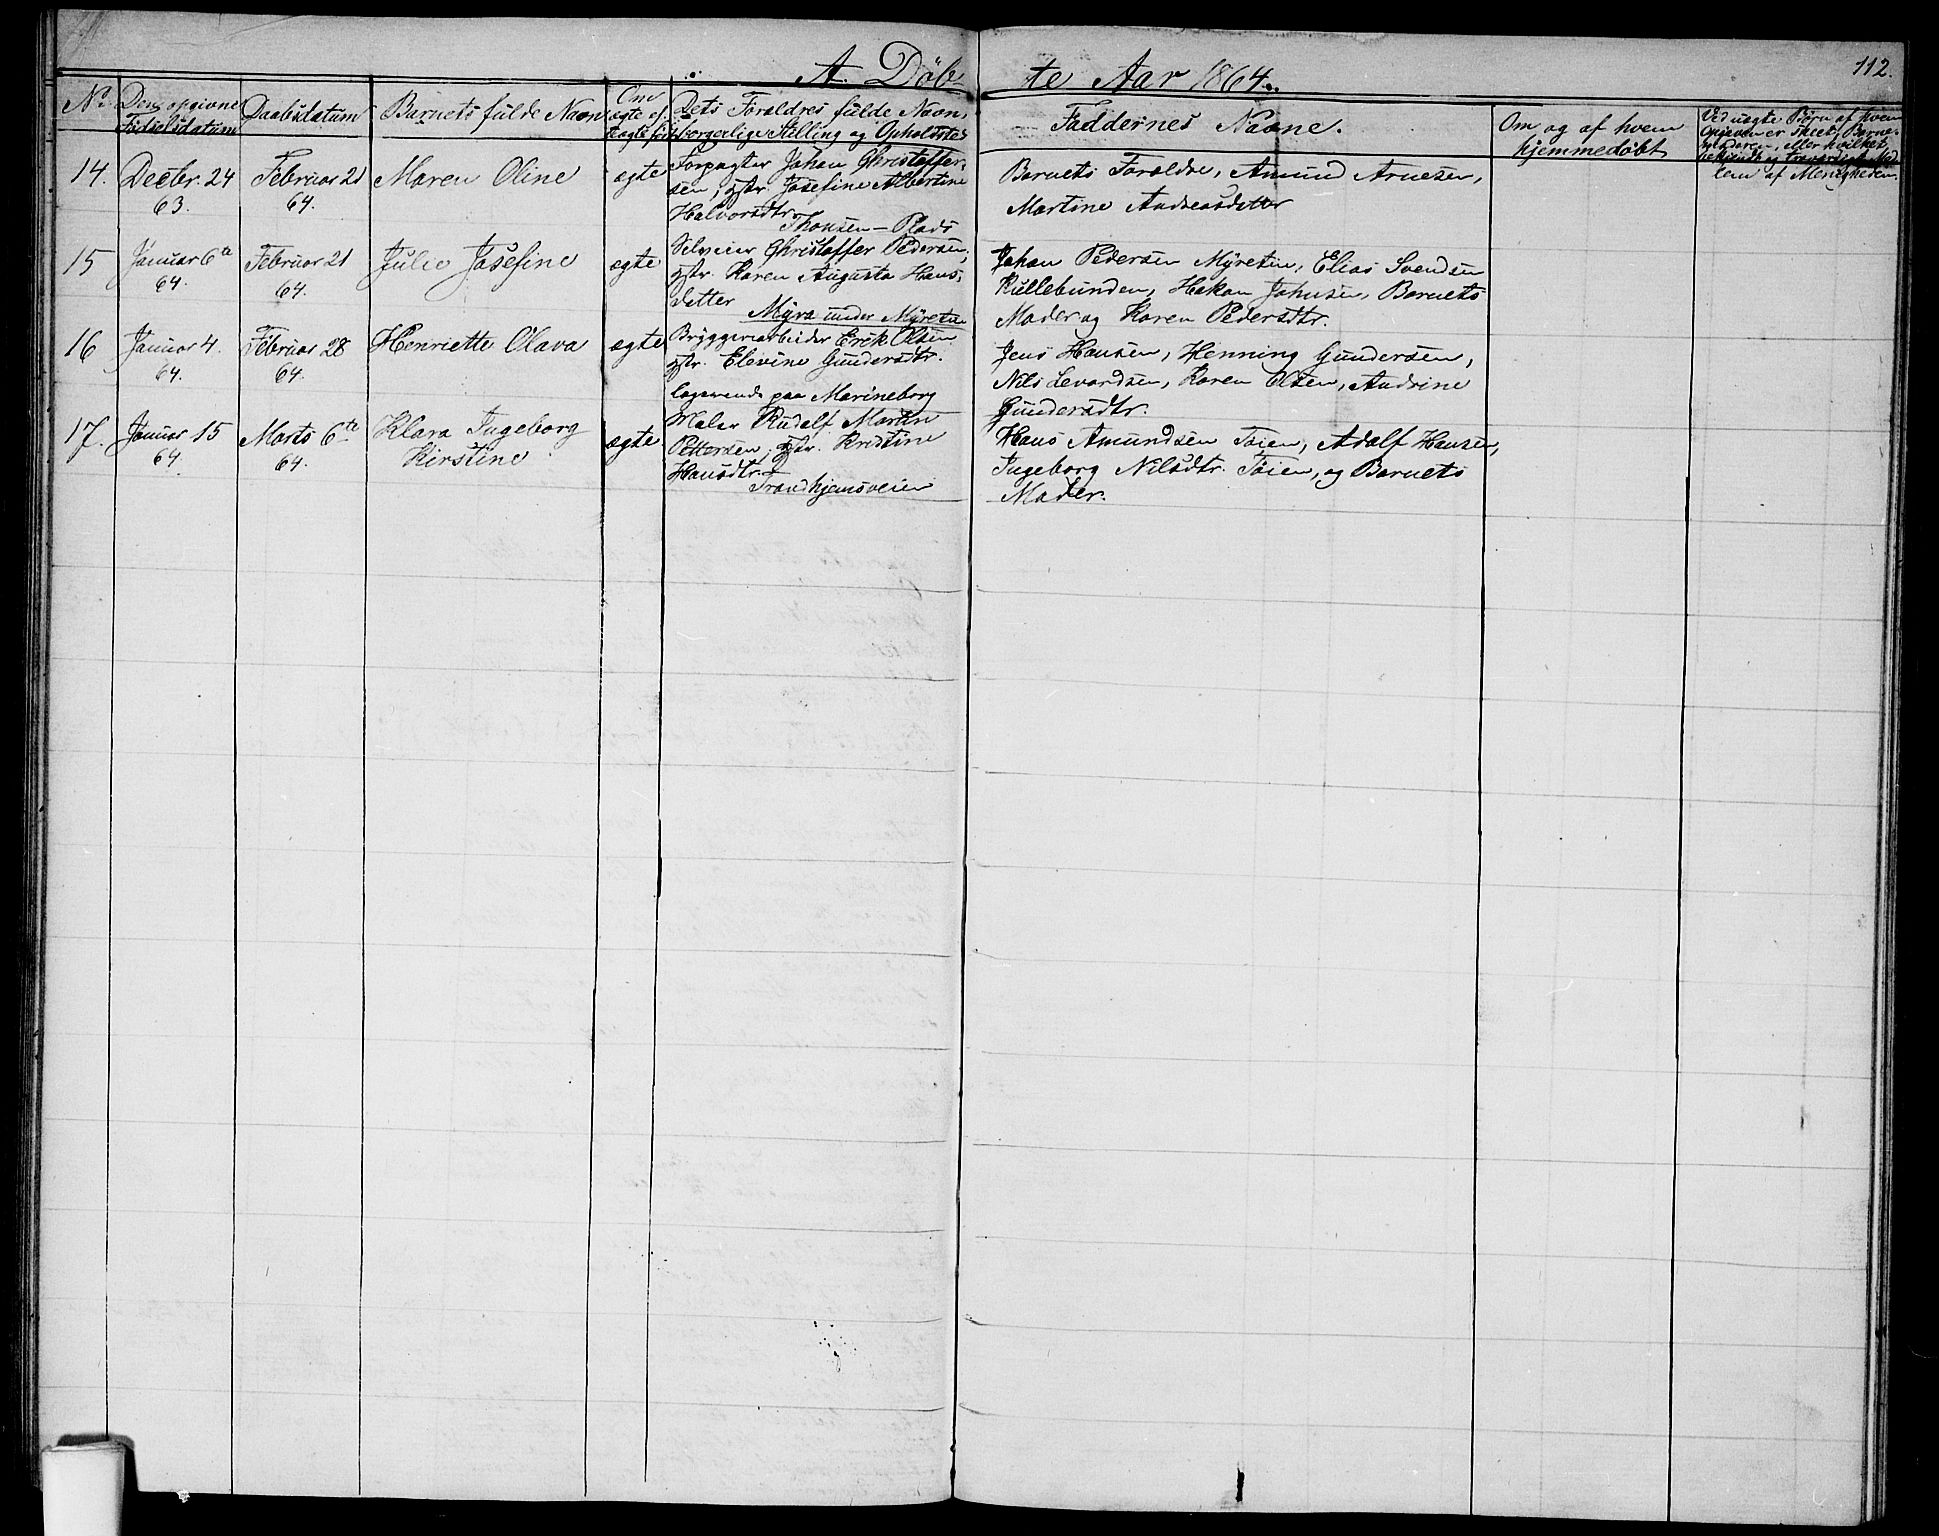 112.
A. Döb- te Aar 1864.
No
Den opgivne
Fødselsdatum
Daabsdatum
Barnets fulde Navn
Om
ægte el.
uægte født
Dets Forældres fulde Navn,
borgerlige Stilling og Opholdsted
Faddernes Navne.
Om og af hvem
hjemmedøbt
Ved uægte Börn af hvem
Opgaven er skeet, Barne-
moderen, eller hvilket
bekjendt og troværdigt Med-
lem af Menigheden.
14.
Decbr. 24
63.
Februar 21
64.
Maren Oline
ægte
Forpagter Johan Christoffer-
sen, Hstr. Josefine Albertine
Halvorsdtr.
Thonsen-Plads
Barnets Forældre, Amund Arnesen,
Martine Andreasdatter
15
Januar 6te
64.
Februar 21
64.
Julie Josefine
ægte
Christoffer Pedersen,
Hstr. Karen Augusta Hans-
datter
Myra under Myreten
Johan Pedersen Myreten, Elias Svendsen
Kullebunden, Hakon Johnsen, Barnets
Moder og Karen Pedersdtr.
16
Januar 4.
64.
Februar 28
64.
Henriette Olava
ægte
Bryggeriarbeider Erik Olsen
Hstr. Elevine Gundersdtr.
logerende paa Marineborg
Jens Hansen, Henning Gundersen,
Nils Levordsen, Karen Olsen, Andrine
Gundersdtr.
17.
Januar 15
64.
Marts 6te
64.
Klara Ingeborg
Kirstine
ægte
Maler Rudolf Martin
Pettersen, Hstr. Kristine
Hansdtr.
Trondhjemsveien
Hans Amundsen Töien, Adolf Hansen,
Ingeborg Nilsdtr. Töien, og Barnets
Moder.